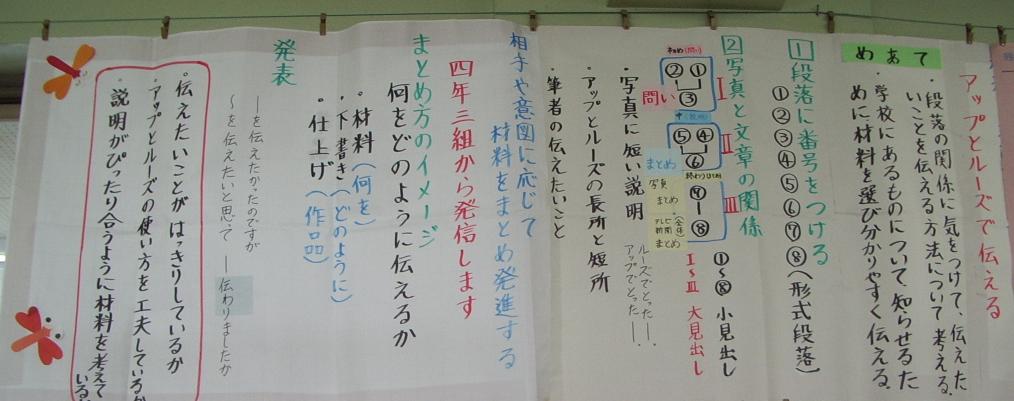 アップとルーズで伝える
めあて
・段落の関係に気をつけて、伝えた
いことを伝える方法について考える。
・学校にあるものについて知らせるた
めに材料を選び分かりやすく伝える。
1 段落に番号をつける
①②③④⑤⑥⑦⑧(形式段落)
2 写真と文章の関係
①~⑧ 小見出し
Ⅰ~Ⅲ 大見出し
Ⅰ
①
②
③
問い
Ⅱ
④
⑤
⑥
まとめ
Ⅲ
⑦
⑧
写真
まとめ
テレビ
新聞
まとめ
写真に短い説明
ルーズでとった——。
アップでとった——。
アップとルーズの長所と短所
筆者の伝えたいこと
相手や意図に応じて
材料をまとめ発進する
四年三組から発信します
まとめ方のイメージ
何をどのように伝えるか
・材料(何を)
・下書き(どのように)
・仕上げ(作品)
発表
——を伝えたかったのですが
~を伝えたいと思って——伝わりましたか
・伝えたいことがはっきりしているか
・アップとルーズの使い方を工夫しているか
・説明がぴったり合うように材料を考えて
いるか